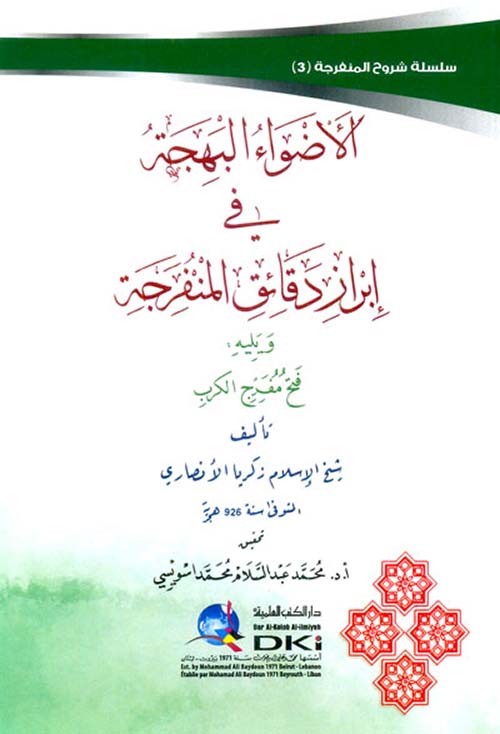 سلسلة شروح المنفرجة (3)
الأَضْوَاءُ البَهِجَةُ
فِي
إِبْرَازِ دَقَائِقِ المُنْفَرِجَةِ
وَيَلِيهِ:
فَتْحُ مُفَرِّجِ الكَرْبِ
تأليف
شيخ الإسلام زكريا الأنصاري
المتوفى سنة 926 هجرية
تحقيق
أ.د. مُحَمَّد عَبْد السَّلَام مُحَمَّد اسْوَيْسِي
دار الكتب العلمية
Dar Al-Kotob Al-ilmiyah
DKi
أسسها محمد علي بيضون سنة 1971 بيروت - لبنان
Est. by Mohammad Ali Baydoun 1971 Beirut - Lebanon
Établie par Mohamad Ali Baydoun 1971 Beyrouth - Liban